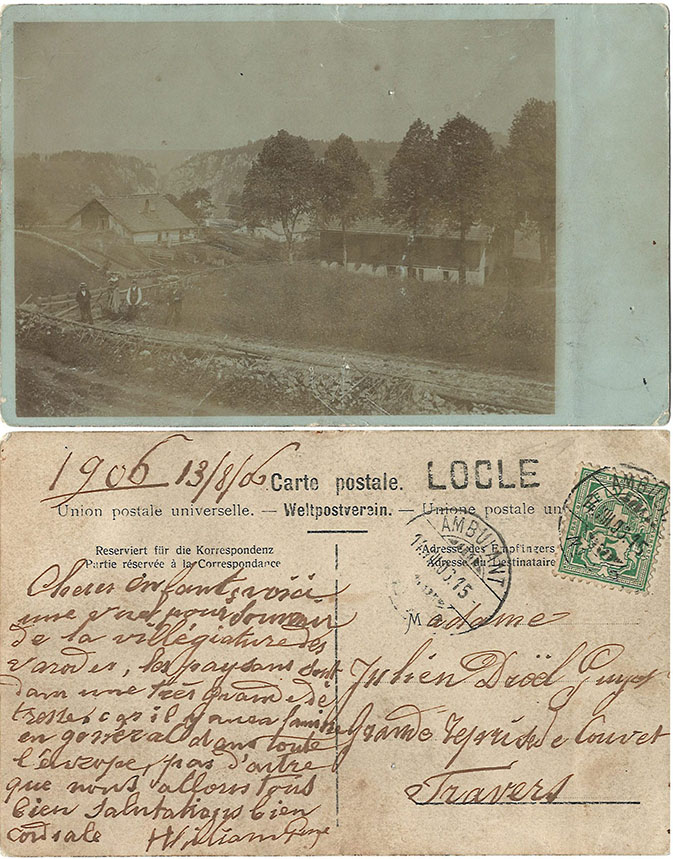 1906 13/8/06
Carte postale. LOCLE
Union postale universelle. — Weltpostverein. — Unione postale un
Reserviert für die Korrespondenz
Partie réservée à la Correspondance
Adresse des Empfängers
Adresse du Destinataire
AMBULANT
AMBU
Chers enfants, voici
une vue pour souvenir
de la villégiature des
les paysans sont
dans une très grande dé
tresse car il y aura famine
en general dans toute
l'europe, pas d'autre
que nous allons tous
bien Salutations bien
cordiale William
Madame
Julien Droël Guye
Grande de Couvet
Travers